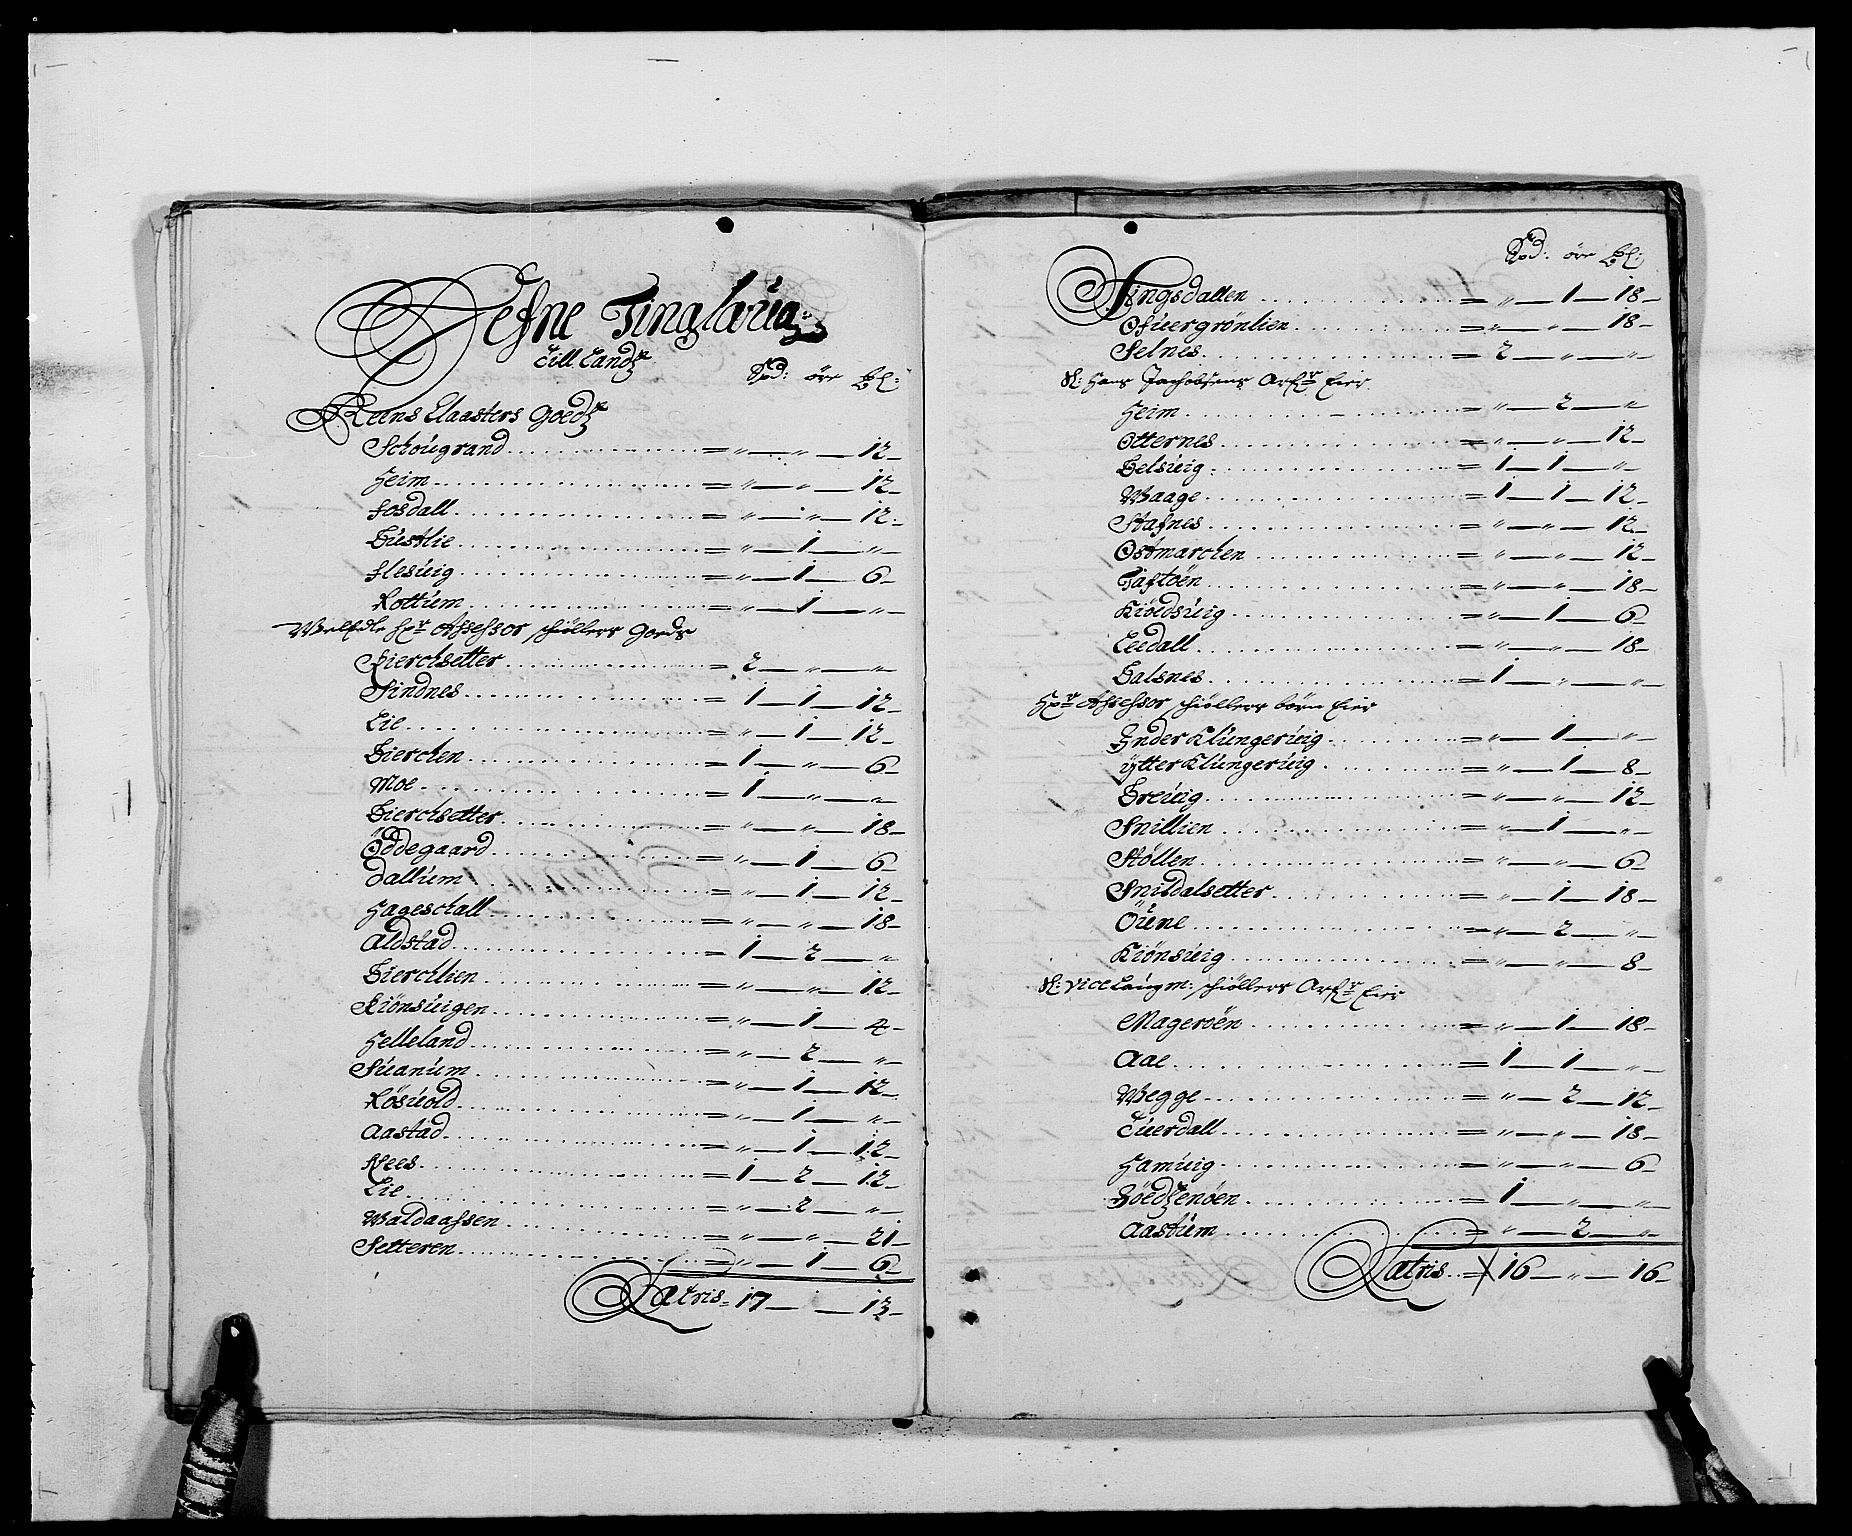 Hefne Tinglaug
Till Landz
Spd: öre ßl:
Reins Claasters Goedz
Schougrand = „ — „ — 12 —
Heim = „ — „ — 12 —
Fosdall = „ — „ — 12 —
Bustlie = „ — 1 — „ —
Flesuig = „ — 1 — 6 —
Rottum = „ — 1 — „ —
WelEdle Hr Assessor Schiøllers Goeds
Bierchsetter = 2 — „ — „ —
Sindnes = 1 — 1 — 12 —
Lie = „ — 1 — 12 —
Bierchen = 1 — „ — 6 —
Moe = 1 — „ — „ —
Bierchsetter = „ — „ — 18 —
Ödegaard = „ — 1 — 6 —
Dallum = „ — 1 — 12 —
Hageschall = „ — „ — 18 —
Aldstad = 1 — 2 — „
Bierchlien = „ — „ — 12 —
Kiönsuigen = „ — 1 — 4 —
Helleland = „ — 2 — „ —
Suanum = „ — 1 — 12 —
Rösuold = „ — 1 — „ —
Aastad = „ — 1 — 12 —
Nees = 1 — 2 — 12 —
Lie = „ — 2 — „ —
Waldaassen = „ — „ — 21 —
Setteren = „ — 1 — 6 —
Latris = 17 — „ — 13 —
Spd: öre ßl:
Tingsdallen = „ — 1 — 18 —
Ofuergrönlien = „ — „ — 18 —
Selnes = 2 — „ — „ —
Sl: Hans Jachobsens Arfr Eier
Heim = „ — 2 — „
Otternes = „ — „ — 12 —
Belsuig = 1 — 1 — „
Waage = 1 — 1 — 12 —
Stafnes = „ — „ — 12 —
Ostmarchen = „ — „ — 12 —
Taftöen = „ — „ — 18 —
Kiöedsuig = „ — 1 — 6 —
Leedall = „ — „ — 18 —
Balsnes = 1 — „ — „ —
Hr Assessor Schiøllers börn Eier
Ynder Klungeruig = „ — 1 — „ —
Ytter Klungeruig = „ — 1 — 8 —
Breuig = „ — „ — 12 —
Snillien = „ — 1 — „ —
Stöllen = „ — „ — 6 —
Snildalsetter = „ — 1 — 18 —
Öune = „ — 2 — „ —
Kiönsuig = „ — „ — 8 —
Sl: Vice Laugm: Schiøllers Arfr Eier
Mageröen = „ — 1 — 18 —
Aae = 1 — 1 — „ —
Wegge = „ — 2 — 12 —
Tuerdall = „ — „ — 18 —
Hamuig = „ — „ — 6 —
= 1 — „ — „ —
Aastum = „ — 2 — „ —
Latris = 16 — „ — 16 —